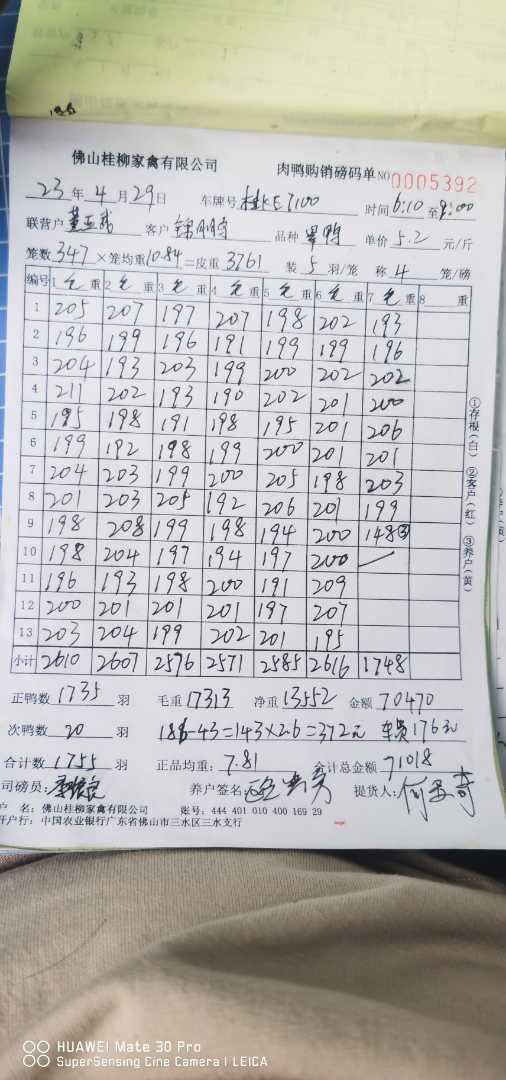 佛山桂柳家禽有限公司 肉鸭购销磅码单 NO 0005392
23年4月29日 车牌号 桂KE7100 时间 6:10至9:00
联营户 客户 品种 单价 5.2 元/斤
笼数 347 × 笼均重 10.84 = 皮重 3761 装 5 羽/笼 称 4 笼/磅
编号 1 毛重 2 毛重 3 毛重 4 毛重 5 毛重 6 毛重 7 毛重 8 重
1 205 207 197 207 198 202 193
2 196 199 196 191 199 199 196
3 204 193 203 199 200 202 202
4 211 202 193 190 202 201 200
5 195 198 191 198 195 201 206
6 199 192 198 199 200 201 201
7 204 203 199 200 205 198 203
8 201 203 205 192 206 201 199
9 198 208 199 198 194 200 148③
10 198 204 197 194 197 200
11 196 193 198 200 191 209
12 200 201 201 201 197 207
13 203 204 199 202 201 195
小计 2610 2607 2576 2571 2585 2616 1748
①存根(白) ②客户(红) ③养户(黄)
正鸭数 1735 羽 毛重 17313 净重 13552 金额 70470
次鸭数 20 羽 186-43=143×2.6=372元 车费176元
合计数 1755 羽 正品均重: 7.81 合计总金额 71018
司磅员: 养户签名: 提货人:
户 名: 佛山桂柳家禽有限公司 账号: 444 401 010 400 169 29
开户行: 中国农业银行广东省佛山市三水区三水支行
HUAWEI Mate 30 Pro
SuperSensing Cine Camera | LEICA